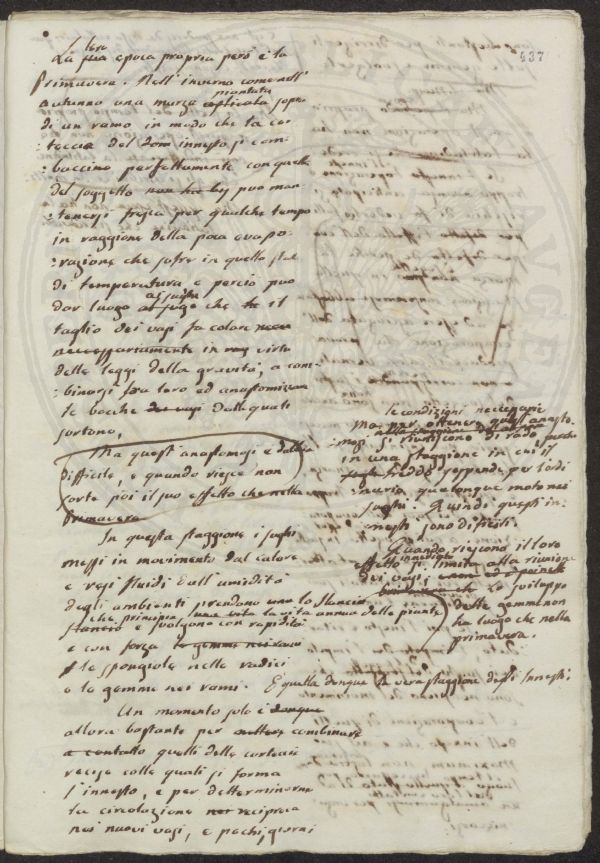 437
loro
La sua epoca propria però è la
Primavera. Nell' inverno come nell'
autunno una marza applicata sopra
piantata
di un ramo in modo che la cor-
teccia del innesto si com-
:baccino perfettamente con quella
del soggetto non ha puo man-
:tenersi fresca per qualche tempo
in raggione della poca evapo-
:razione che sofre in quello stato
di temperatura e perciò puo
dar luogo che il
ai sughi
taglio dei vasi fa colare
neccessariamente in virtù
delle leggi della gravità, a com-
:binarsi fra loro ed anastomizzare
le bocche dei vasi dalle quali
sortono.
Ma questi anastomosi è dubbia
difficile, e quando riesce non
sorte poi il suo effetto che nella
primavera
In questa staggione i sughi
messi in movimento dal calore
e resi fluidi dall' umidità
degli ambienti prendono uno lo slancio
che principia la vita annua delle piante
slancio e svolgono con rapidità
e con forza le gemme nei rami
le spongiole nelle radici
e le gemme nei rami. È quella dunque la vera staggione degli Innesti.
Un momento solo è dunque
allora bastante per mettere combinare
a contatto quelli delle corteccie
recise colle quali si forma
l'innesto, e per determinarne
la circolazione reciproca
nei nuovi vasi, e pochi giorni
le condizioni neccessarie
Ma per ottenere quest' anasto-
mosi si riuniscono di rado, perche
in una staggione in cui il
freddo sospende per l'ordi
:nario qualonque moto nei
sughi. Quindi questi in-
:nesti sono difficili.
Quando riescono il loro
effetto si limita alla riunione
immediato
dei vasi,
lo sviluppo
delle gemme non
ha luogo che nella
primavera.